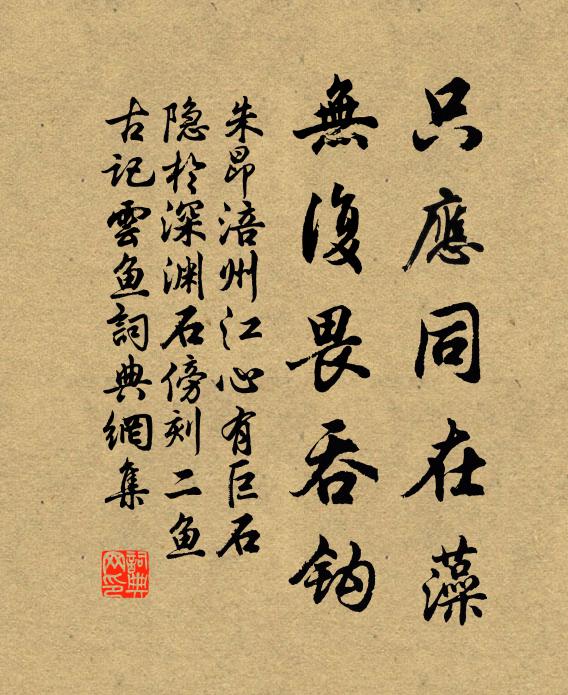 只應同在藻
無復畏吞鈎
朱昂涪州江心有巨石
隐於深渊石傍刻二鱼
古記雲鱼詞典網集
詞典网印